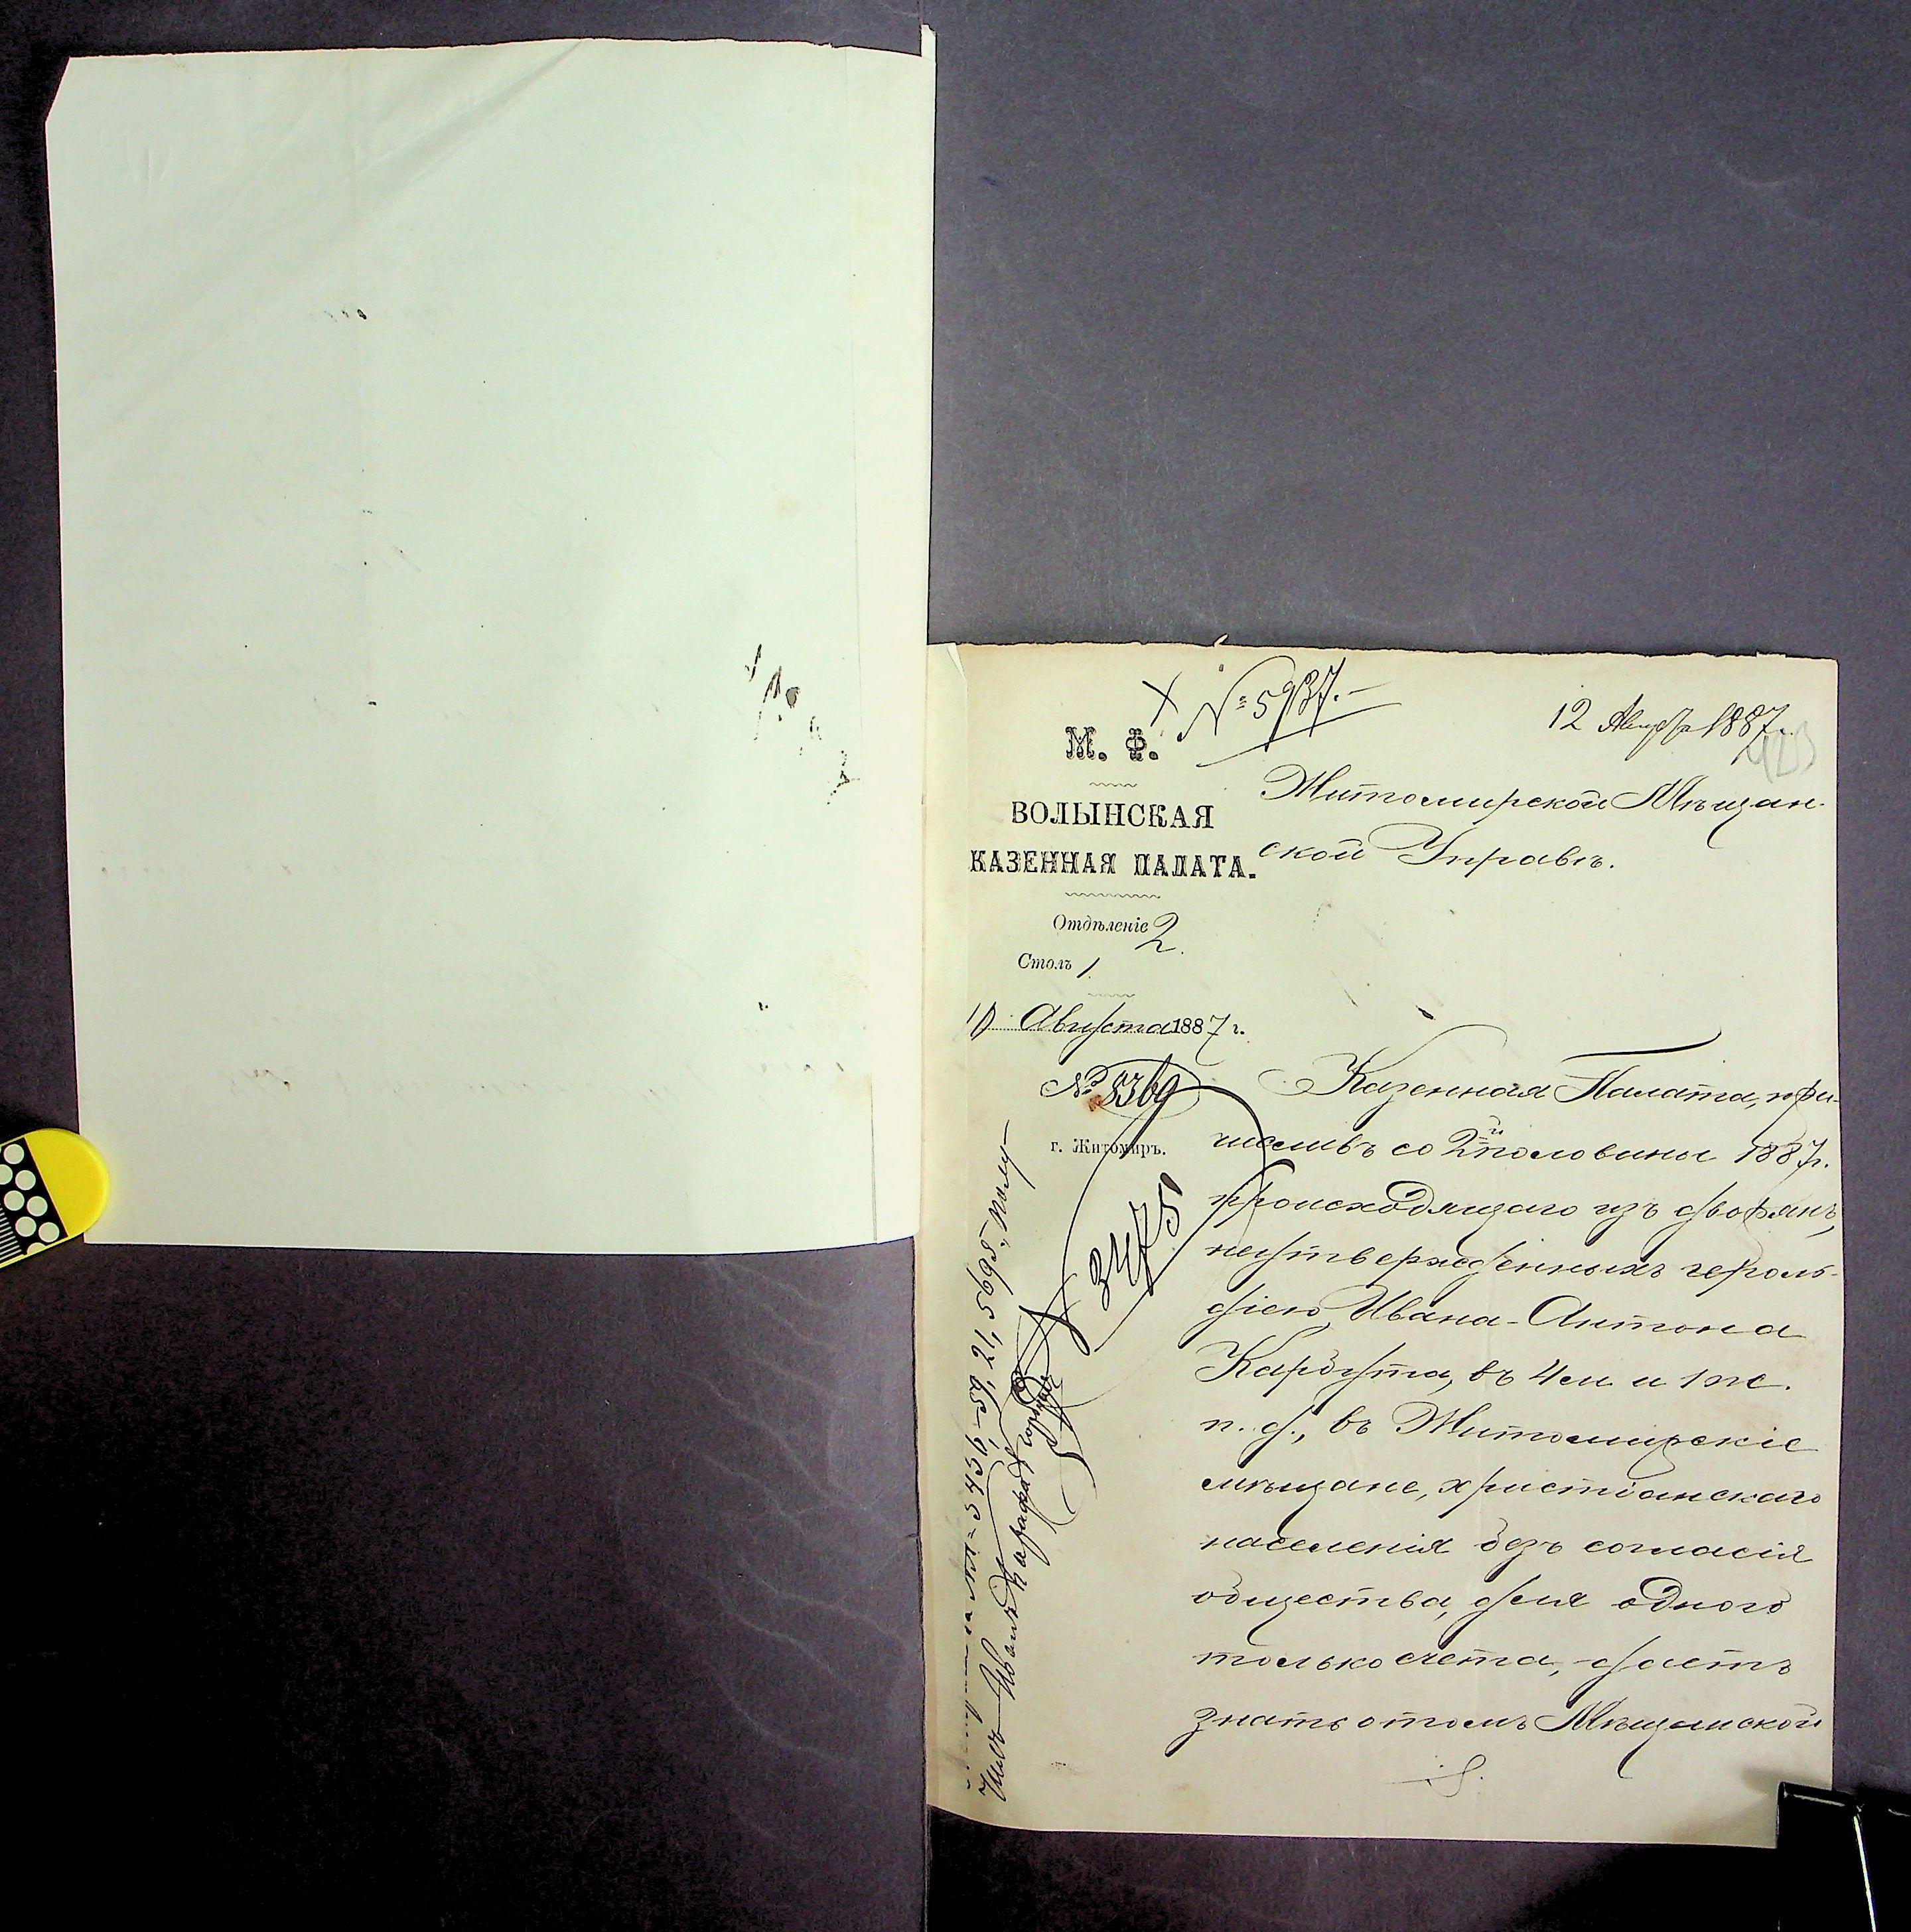 № 5937.
12 Августа 1887 г.
М. Ф.
ВОЛЫНСКАЯ
КАЗЕННАЯ ПАЛАТА.
Отдѣленіе 2.
Столъ 1.
10 Августа 1887 г.
№ 8369
г. Житомиръ.
3475
Житомирской Мѣщан-
ской Управѣ.
Казенная Палата, при-
числивъ со 2й половины 1887 г.
происходящаго изъ дворянъ,
неутвержденныхъ героль-
діею, Ивана-Антона
въ 4 м и 1 ж.
п. д., въ Житомирскіе
мѣщане, христіанскаго
населенія безъ согласія
общества, для одного
только счета, даетъ
знать о томъ Мѣщанской
5436-59, 21, 5695,
Иванъ